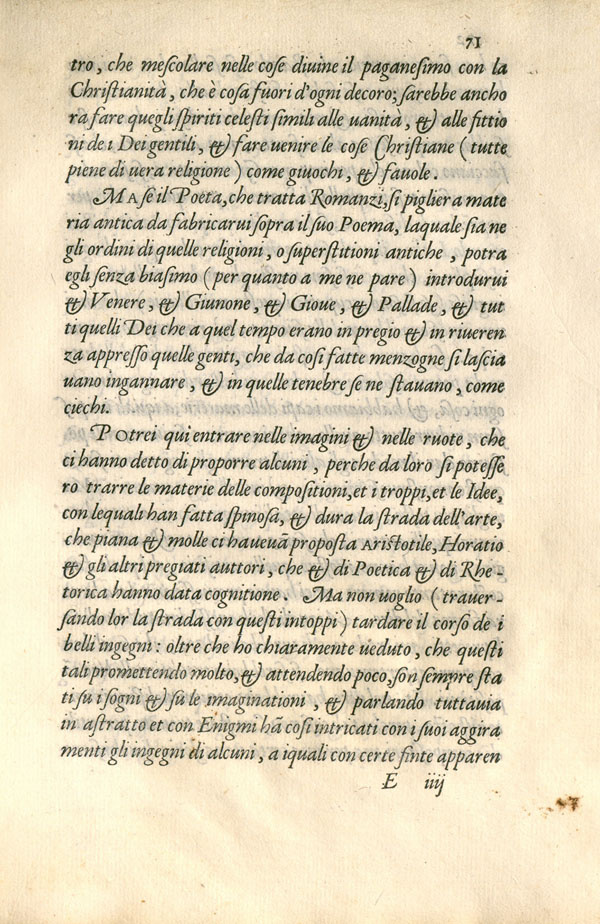 71
tro, che meſcolare nelle coſe diuine il paganeſimo con la
Chriſtianità, che è coſa fuori d'ogni decoro; ſarebbe ancho
ra fare quegli ſpiriti celeſti ſimili alle uanità, & alle fittio
ni de i Dei gentili, & fare uenire le coſe Chriſtiane (tutte
piene di uera religione) come giuochi, & fauole.
MA ſe il Poeta, che tratta Romanzi, ſi pigliera mate
ria antica da fabricarui ſopra il ſuo Poema, laquale ſia ne
gli ordini di quelle religioni, o ſuperſtitioni antiche, potra
egli ſenza biaſimo (per quanto a me ne pare) introdurui
& Venere, & Giunone, & Gioue, & Pallade, & tut
ti quelli Dei che a quel tempo erano in pregio & in riueren
za appreſſo quelle genti, che da coſi fatte menzogne ſi laſcia
uano ingannare, & in quelle tenebre ſe ne ſtauano, come
ciechi.
POtrei qui entrare nelle imagini & nelle ruote, che
ci hanno detto di proporre alcuni, perche da loro ſi poteſſe
ro trarre le materie delle compoſitioni, et i troppi, et le Idee,
con lequali han fatta ſpinoſa, & dura la ſtrada dell'arte,
che piana & molle ci haueuã propoſta Ariſtotile, Horatio
& gli altri pregiati auttori, che & di Poetica & di Rhe-
torica hanno data cognitione. Ma non uoglio (trauer-
ſando lor la ſtrada con queſti intoppi) tardare il corſo de i
belli ingegni: oltre che ho chiaramente ueduto, che queſti
tali promettendo molto, & attendendo poco, ſon ſempre ſta
ti ſu i ſogni & ſu le imaginationi, & parlando tuttauia
in aſtratto et con Enigmi hã coſi intricati con i ſuoi aggira
menti gli ingegni di alcuni, a iquali con certe finte apparen
E iiij